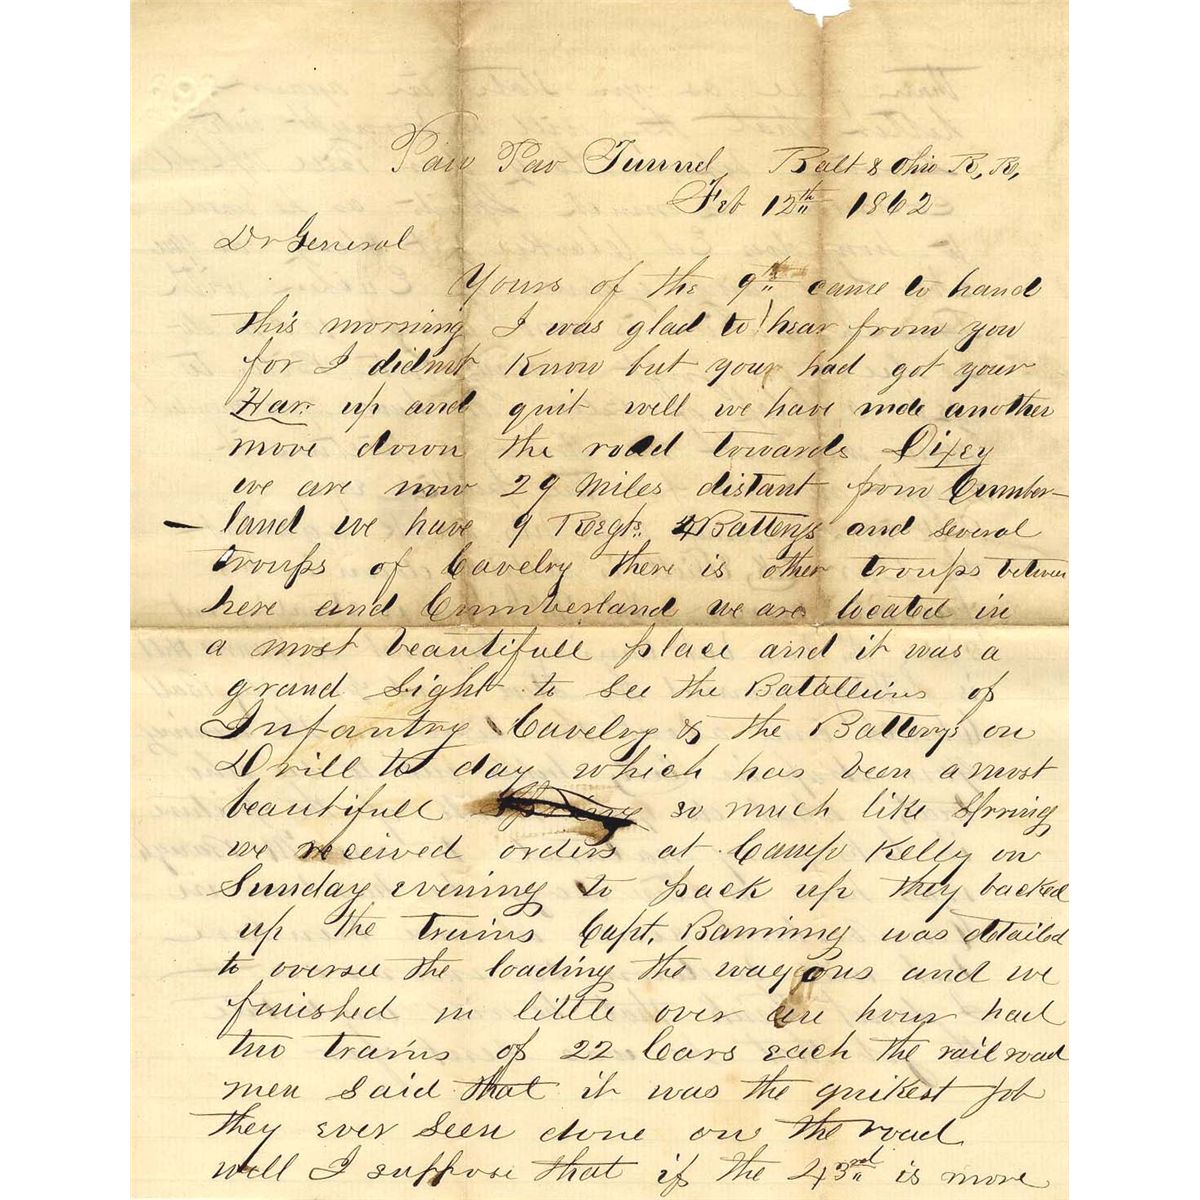 Paw Paw Tunnel, Balt & Ohio R, R,
Feb 12th 1862
Dr General
Yours of the 9th came to hand
this morning I was glad to hear from you
for I didnt know but your had got your
up and quit well we have mde another
move down the road towards Dixey
we are now 29 miles distant from Cumber-
land we have 9 Regts. 4 Batterys and several
troups of Cavelry there is other troups between
here and Cumberland we are located in
a most beautifull place and it was a
grand sight to see the Batallions of
Infantry Cavelry & the Batterys on
Drill to day which has been a most
beautifull so much like Spring
we received orders at Camp Kelly on
Sunday evening to pack up they backed
up the trains Capt. Banning was detailed
to oversee the loading the waggons and we
finished in little over an hour had
two trains of 22 Cars each the rail road
men said that it was the quikest job
they ever seen done on the road
well I suppose that if the 43rd is more